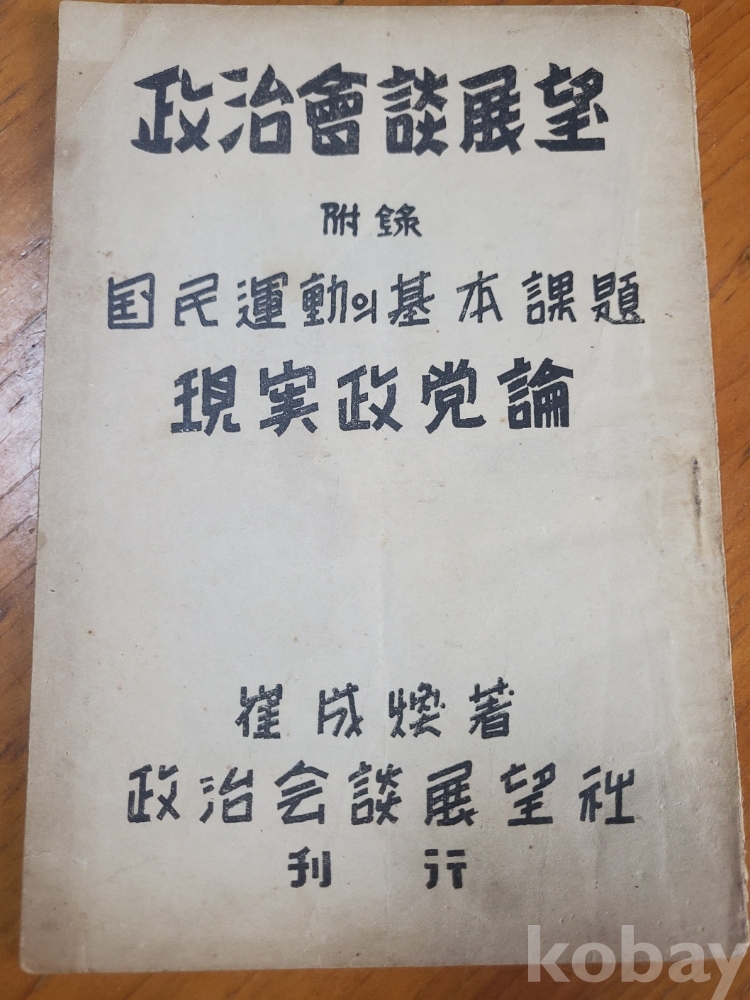 政治會談展望
附錄
国民運動의基本課題
現実政党論
崔成煥著
政治会談展望社
刊行
kobay